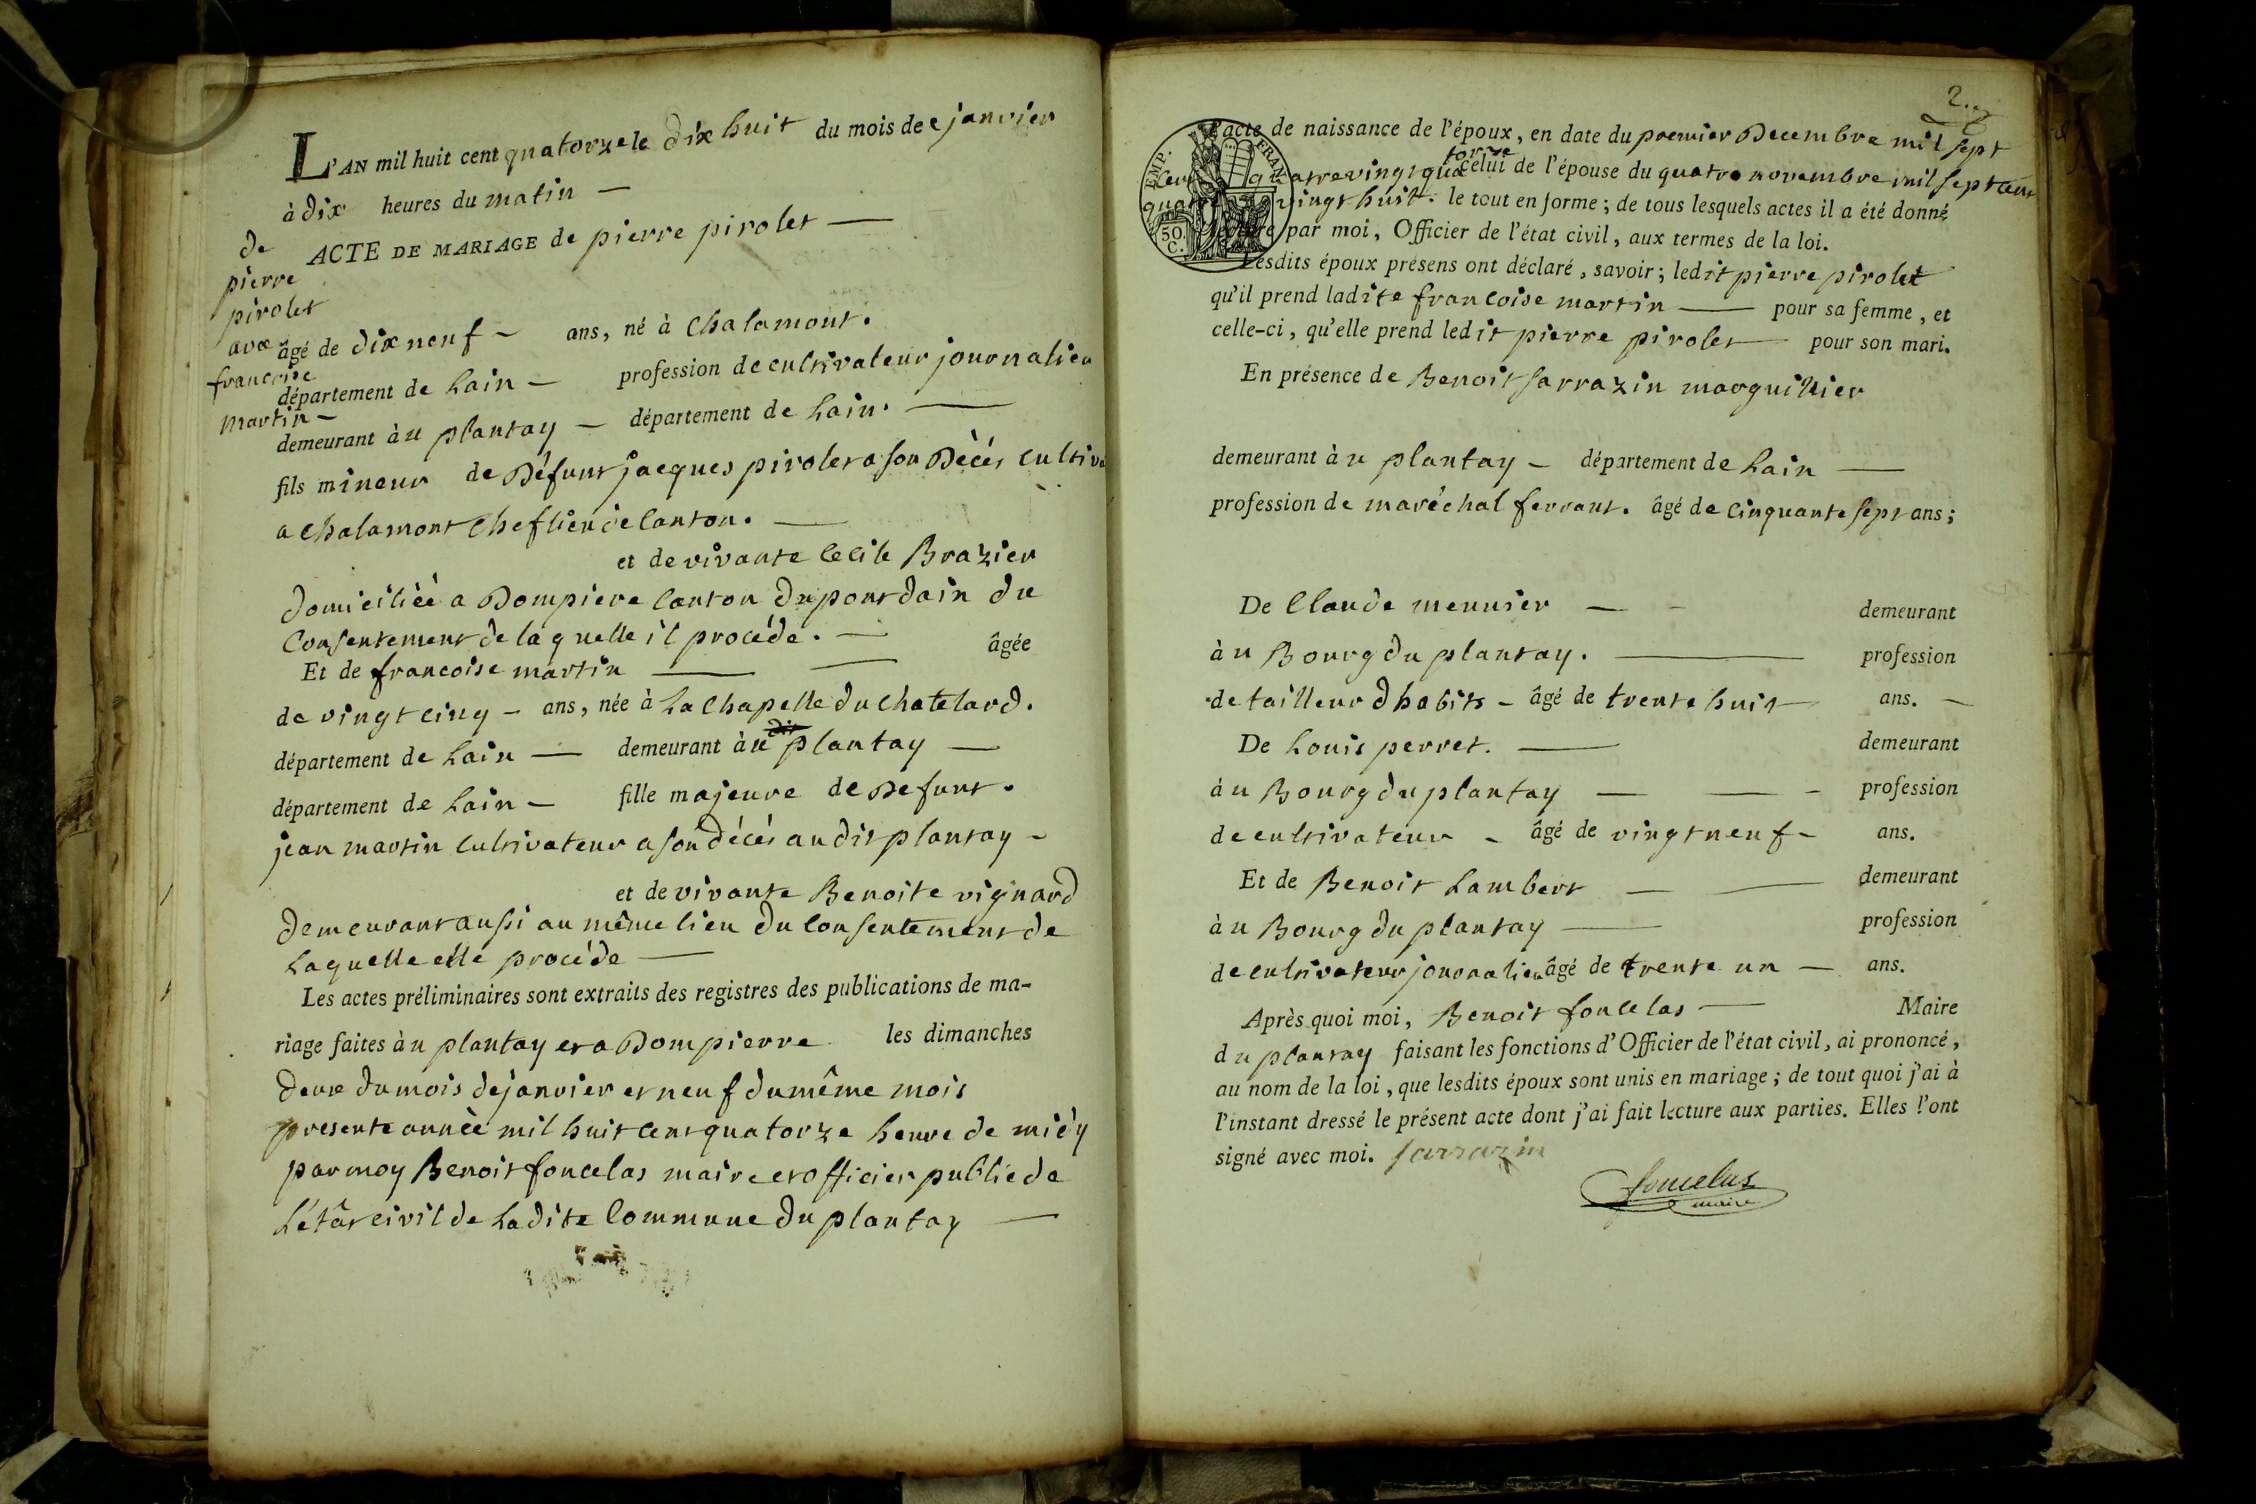 L'AN mil huit cent quatorze le dix huit du mois de janvier
à dix heures du matin —
ACTE DE MARIAGE de pierre pirolet —
de
pierre
pirolet
avec
francoise
martin —
âgé de dix neuf — ans, né à Chalamont.
département de Lain — profession de cultivateur journalier
demeurant àu plantay — département de Lain. —
fils mineur de Défunt jacques pirolet a son Décés cultiva
a Chalamont Chef lieu de Canton. —
et de vivante Cecile Brazier
Domiciliéé a Dompiere Canton du pont dain du
Consentement de laquelle il procéde. —
Et de francoise martin — — âgée
de vingt cinq — ans, née à La Chapelle du Chatelard.
département de Lain — demeurant àu plantay —
département de Lain — fille majeure de Defunt.
jean martin Cultivateur a son décés au dit plantay —
et de vivante Benoite vignard
Demeurant aussi au même lieu Du Consentement de
Laquelle elle procéde —
Les actes préliminaires sont extraits des registres des publications de ma-
riage faites àu plantay et a Dompierre les dimanches
Deux du mois de janvier et neuf du même mois
presente annéè mil huit Cent quatorze heure de midy
par moy Benoit foncelas maire et officier public de
L'étât civil de Ladite Commune du plantay —
2.
L'acte de naissance de l'époux, en date du premier Decembre mil sept
Cent quatrevingt qua
torze
celui de l'épouse du quatre novembre mil sept Cent
quatre vingt huit. le tout en forme; de tous lesquels actes il a été donné
lecture par moi, Officier de l'état civil, aux termes de la loi.
Lesdits époux présens ont déclaré, savoir; ledit pierre pirolet
qu'il prend ladite francoise martin — pour sa femme, et
celle-ci, qu'elle prend ledit pierre pirolet — pour son mari.
En présence de Benoit sarrazin marguillier
demeurant àu plantay — département de Lain —
profession de maréchal ferrant. âgé de Cinquante sept ans;
De Claude meunier — demeurant
àu Bourg du plantay. — profession
de tailleur d habits — âgé de trente huit — ans. —
De Louis perret. — demeurant
àu Bourg du plantay — — — profession
de cultivateur — âgé de vingt neuf — ans.
Et de Benoit Lambert — — demeurant
àu Bourg du plantay — profession
de cultivateur journalier âgé de trente un — ans.
Après quoi moi, Benoit foncelas — Maire
du plantay faisant les fonctions d'Officier de l'état civil, ai prononcé,
au nom de la loi, que lesdits époux sont unis en mariage; de tout quoi j'ai à
l'instant dressé le présent acte dont j'ai fait lecture aux parties. Elles l'ont
signé avec moi. sarrazin
foncelas
maire
EMP. FRAN.
50
C.